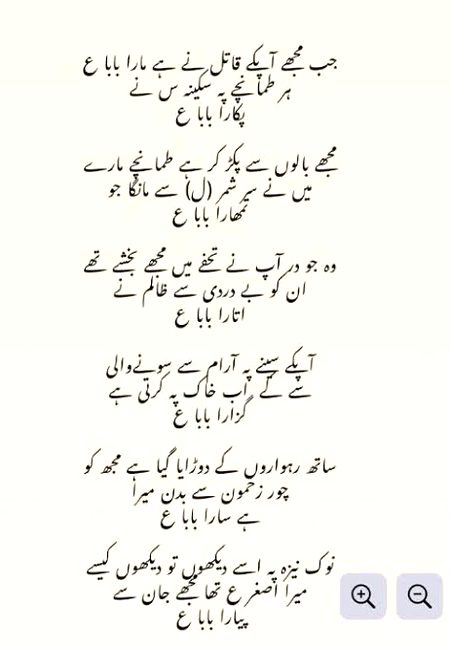 جب مجھے آپکے قاتل نے ہے مارا بابا ع
ہر طمانچے پہ سکینہ س نے
پکارا بابا ع
مجھے بالوں سے پکڑ کر ہے طمانچے مارے
میں نے سر شمر (ل) سے مانگا جو
تمھارا بابا ع
وہ جو در آپ نے تحفے میں مجھے بخشے تھے
ان کو بے دردی سے ظالم نے
اتارا بابا ع
آپکے سینے پہ آرام سے سونےوالی
سے لے اب خاک پہ کرتی ہے
گزارا بابا ع
ساتھ رہواروں کے دوڑایا گیا ہے مجھ کو
چور زخمون سے بدن میرا
ہے سارا بابا ع
نوک نیزہ پہ اسے دیکھوں تو دیکھوں کیسے
میرا اصغر ع تھا مجھے جان سے
پیارا بابا ع